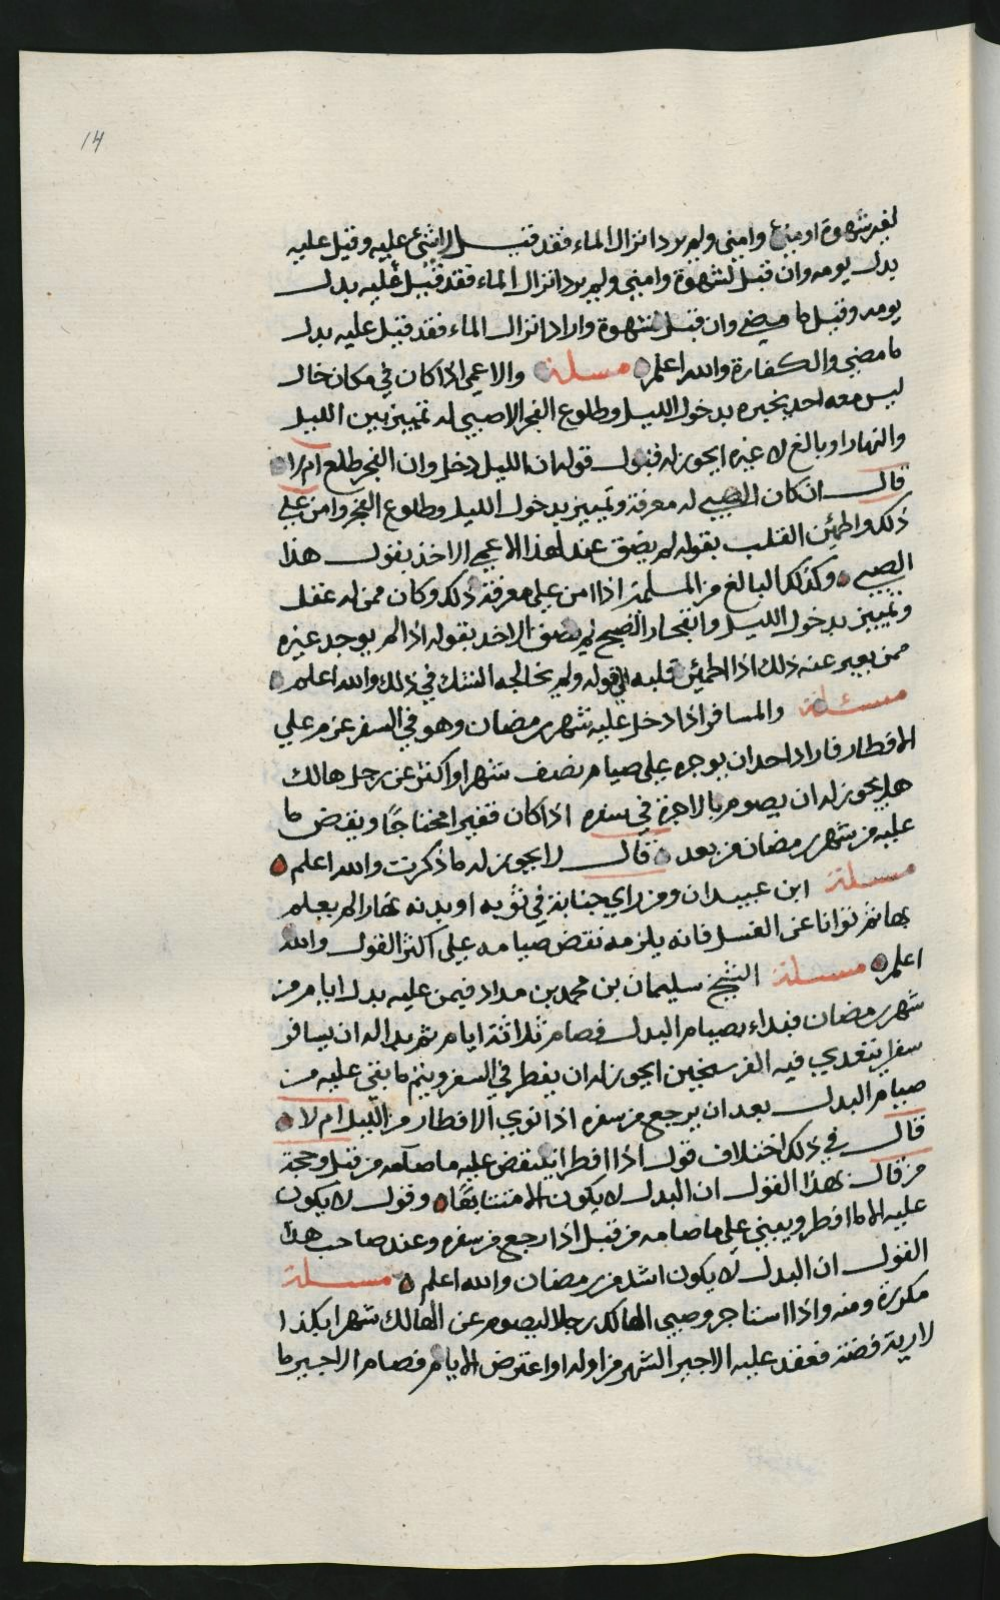 14
لغير شهوة او وامنى ولم يرد انزال الماء فقد قيل لا شيء عليه وقيل عليه
بدل يومه وان قبل لشهوة وامنى ولم يرد انزال الماء فقد قيل عليه بدل
يومه وقيل ما مضى وان قبل لشهوة واراد انزال الماء فقد قيل عليه بدل
ما مضى والكفارة والله اعلم مسلة والاعمى اذا كان في مكان خال
ليس معه احد يخبره بدخول الليل وطلوع الفجر الا صبي له تمييز بين الليل
والنهار او بالغ لا غيره ايجوز له قبول قوله ان الليل دخل وان الفجر طلع ام لا
قال ان كان الصبي له معرفة وتمييز بدخول الليل وطلوع الفجر وامن على
ذلك واطمئن القلب بقوله لم يضق عند هذا الاعمى الاخذ بقول هذا
الصبي وكذلك البالغ من المسلمة اذا امن على معرفة ذلك وكان ممن له عقل
وتمييز بدخول الليل وانفجار الصبح لم يضق الاخذ بقوله اذا لم يوجد غيره
ممن يعبر عنه ذلك اذا اطمئن قلبه الى قوله ولم يخالجه الشك في ذلك والله اعلم
مسئلة والمسافر اذا دخل عليه شهر رمضان وهو في السفر عزم علي
الافطار فاراد احد ان يوجره على صيام نصف شهر او اكثر عن رجل هالك
هل يجوز له ان يصوم بالاجرة في سفره اذا كان فقيرا محتاجا ويقض ما
عليه من شهر رمضان من بعد قال لا يجوز له ما ذكرت والله اعلم
مسلة ابن عبيدان ومن راي جنابة في ثوبه او بدنه نهارا لم يعلم
بها ثم توانا عن الغسل فانه يلزمه نقض صيامه على اكثر القول والله
اعلم مسلة الشيخ سليمان بن محمد بن مداد فيمن عليه بدل ايام من
شهر رمضان فبداء بصيام البدل فصام ثلاثة ايام ثم بدا له ان يسافر
سفرا يتعدي فيه الفرسخين ايجوز له ان يفطر في السفر ويتم ما بقي عليه من
صيام البدل بعد ان يرجع من سفره اذا نوي الافطار من الليل ام لا
قال في ذلك اختلاف قول اذا افطر انتقض عليه ما صامه من قبل وحجة
من قال بهذا القول ان البدل لا يكون الا متتابعا وقول لا يكون
عليه الا ما افطر ويبني على ما صامه من قبل اذا رجع من سفره وعند صاحب هذا
القول ان البدل لا يكون اشد من رمضان والله اعلم مسلة
مكررة ومنه واذا استاجر وصي الهالك رجلا ليصوم عن الهالك شهرا بكذا
لارية فضة فعقد عليه الاجير الشهر من اوله او اعترض الايام فصام الاجير ما